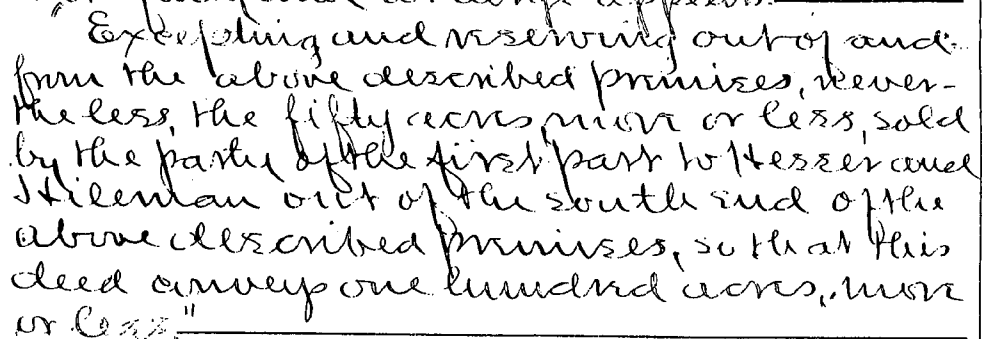 appears.
Excepting and reserving out of and
from the above described premises, never-
theless, the fifty acres, more or less, sold
by the party of the first part to Hesser and
Hileman out of the south end of the
above described premises, so that this
deed conveys one hundred acres, more
or less."